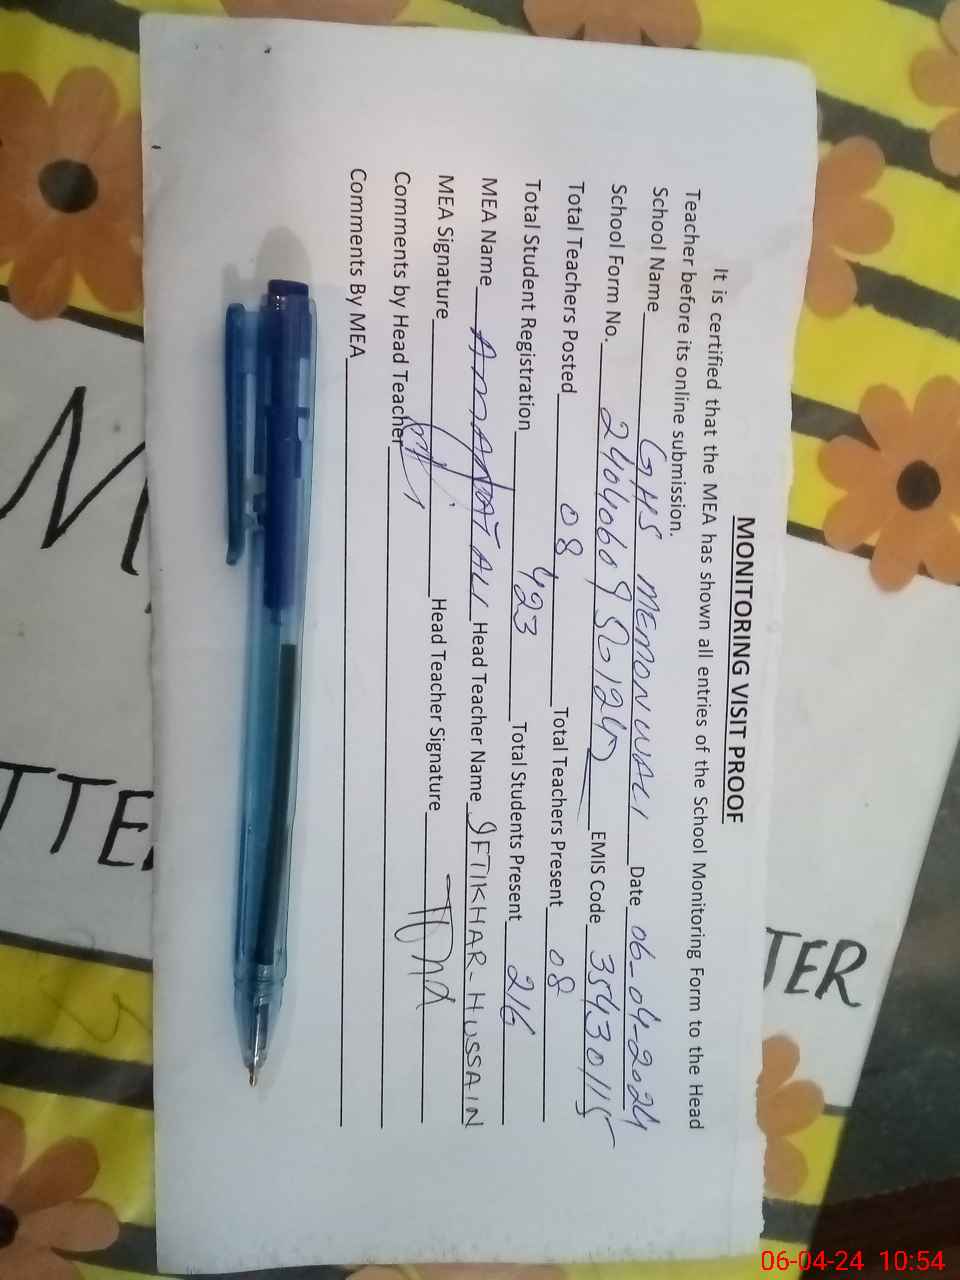 MONITORING VISIT PROOF
It is certified that the MEA has shown all entries of the School Monitoring Form to the Head
Teacher before its online submission.
School Name GHS MEMON WALI Date 06-04-2024
School Form No. EMIS Code 35430115
Total Teachers Posted 08 Total Teachers Present 08
Total Student Registration 423 Total Students Present 216
MEA Name ALI Head Teacher Name IFTIKHAR-HUSSAIN
MEA Signature Head Teacher Signature
Comments by Head Teacher
Comments By MEA
TER
06-04-24 10:54